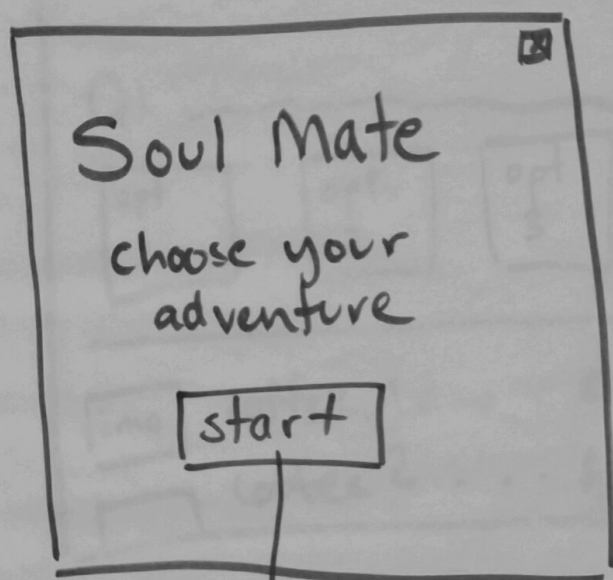 Soul Mate
choose your
adventure
start